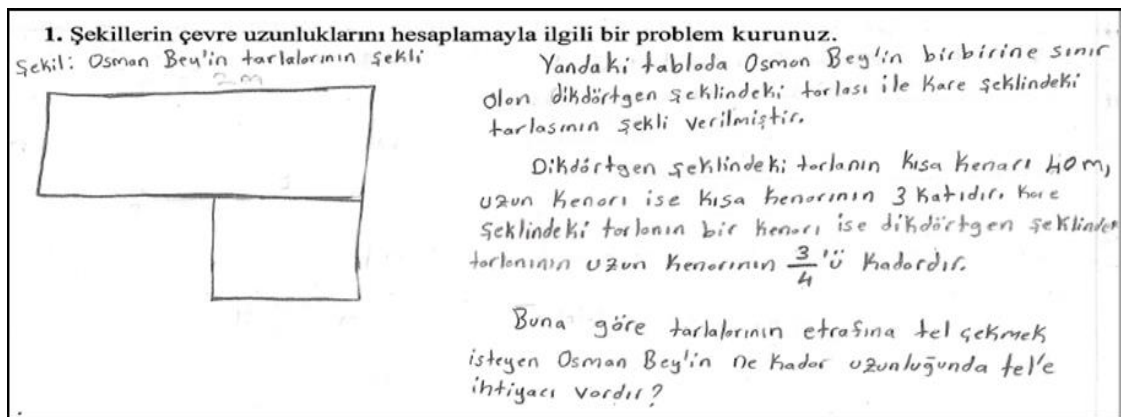 1. Şekillerin çevre uzunluklarını hesaplamayla ilgili bir problem kurunuz.
Şekil: Osman Bey'in tarlalarının şekli
2m
Yandaki tabloda Osman Bey'in birbirine sınır
olan dikdörtgen şeklindeki tarlası ile kare şeklindeki
tarlasının şekli verilmiştir.
Dikdörtgen şeklindeki tarlanın kısa kenarı 40m,
uzun kenarı ise kısa kenarının 3 katıdır. Kare
şeklindeki tarlanın bir kenarı ise dikdörtgen şeklinde
tarlanının uzun kenarının 3/4 'ü kadardır.
Buna göre tarlalarının etrafına tel çekmek
isteyen Osman Bey'in ne kadar uzunluğunda tel'e
ihtiyacı vardır?